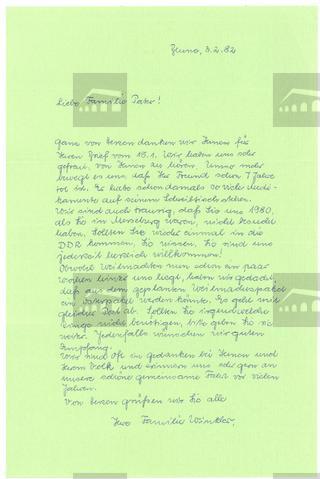 Leuna, 3.2.82
Liebe Familie Pater!
Ganz von Herzen danken wir Ihnen für
Ihren Brief vom 15.1. Wir haben uns sehr
gefreut, von Ihnen zu hören. Umso mehr
bewegt es uns, daß Ihr Freund schon 7 Jahre
tot ist. Er hatte schon damals so viele Medi-
kamente auf seinem Schreibtisch stehen.
Wir sind auch traurig, daß Sie uns 1980,
als Sie in Merseburg waren, nicht besucht
haben. Sollten Sie wieder einmal in die
DDR kommen, Sie wissen, Sie sind uns
jederzeit herzlich willkommen!
Obwohl Weihnachten nun schon ein paar
Wochen hinter uns liegt, haben wir gedacht,
daß aus dem geplanten Weihnachtspaket
ein Osterpaket werden könnte. Es geht mit
gleicher Post ab. Sollten Sie irgendwelche
Dinge nicht benötigen, bitte geben Sie sie
weiter. Jedenfalls wünschen wir guten
Empfang.
Wir sind oft in Gedanken bei Ihnen und
Ihrem Volk und erinnern uns sehr gern an
unsere schöne gemeinsame Fahrt vor vielen
Jahren.
Von Herzen grüßen wir Sie alle
Ihre Familie Winkler